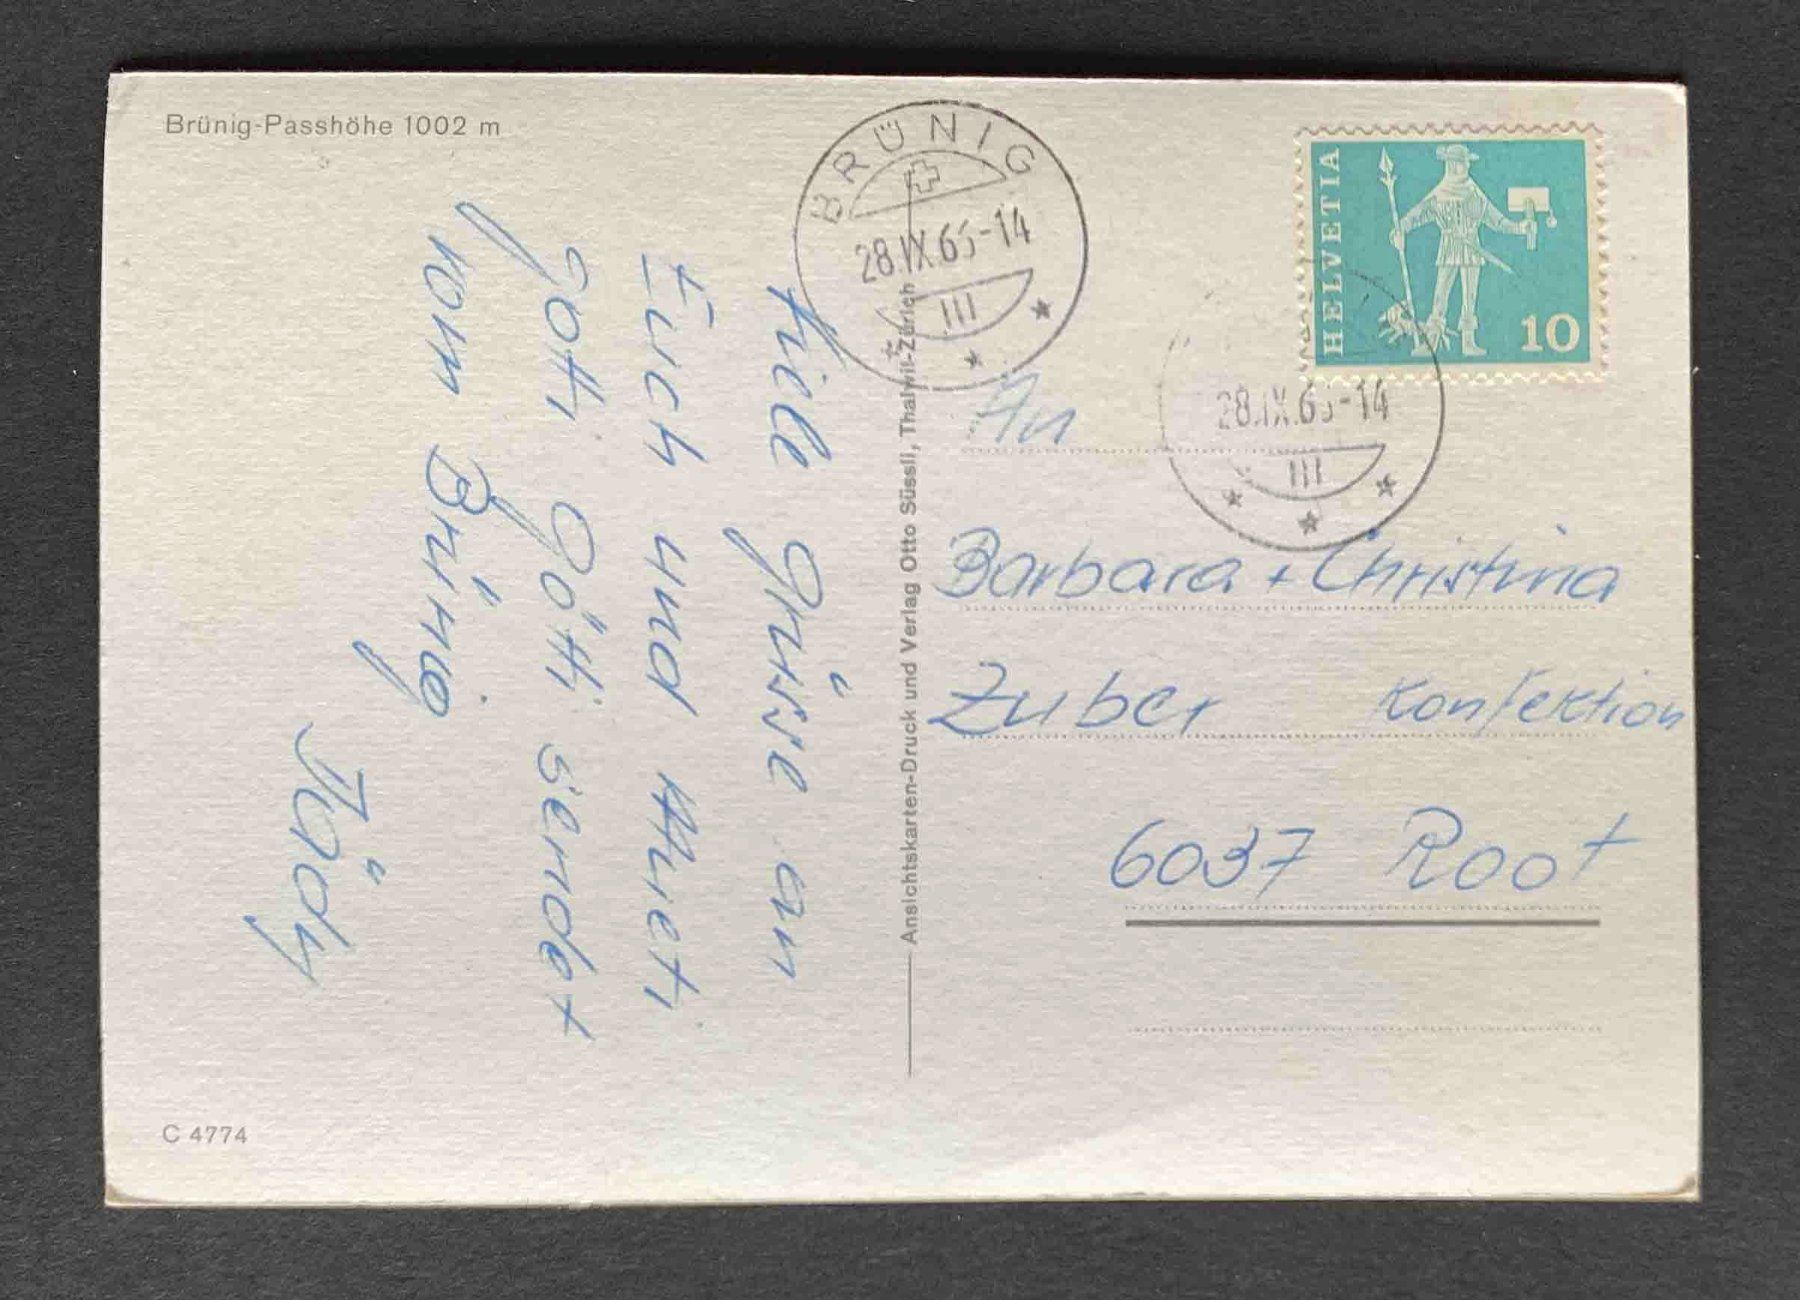 Brünig-Passhöhe 1002 m
BRÜNIG
28.IX.65-14
HELVETIA
10
28.IX.65-14
Viele Grüsse an
Euch und Mueti
Gotti Götti sendet
vom Brünig
Ködy
Ansichtskarten-Druck und Verlag Otto Süssli, Thalwil-Zürich
An
Barbara + Christina
Zuber Konfektion
6037 Root
C 4774